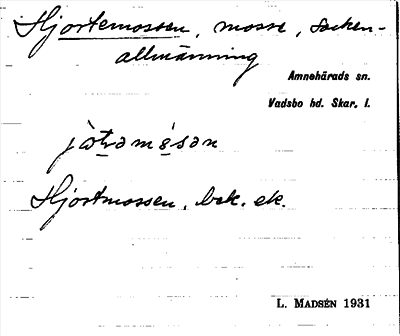 Hjortemossen, mosse, socken-
allmänning
Amnehärads sn.
Vadsbo hd. Skar. l.
Hjortmossen, bek. ek.
L. MADSÉN 1931